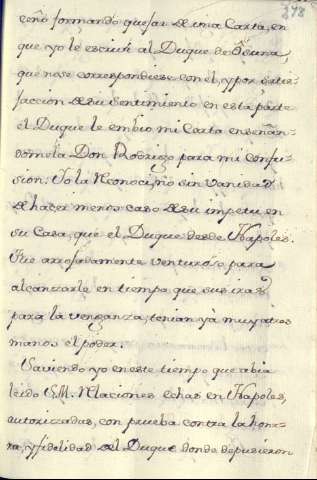 278
ceño formando quejas de una Carta, en
que yo le escriui al Duque de Osuna,
que no se correspondiese con el, y por satis-
faccion de su sentimiento en esta parte
el Duque le embio mi Carta enseñan-
domela Don Rodrigo para mi confu-
sion. Yo la Reconoci, no sin vanidad
de hacer menos caso de su impetu en
su Casa, que el Duque desde Napoles.
Fue arrojadamente venturoso para
alcanzarle en tiempo que sus iras
para la venganza, tenian yà muy atras
manos el poder.
Saviendo yo en este tiempo que abia
leido S.M. Relaciones echas en Napoles,
autorizadas, con prueba contra la hon-
rra, y fidelidad del Duque donde depusieron